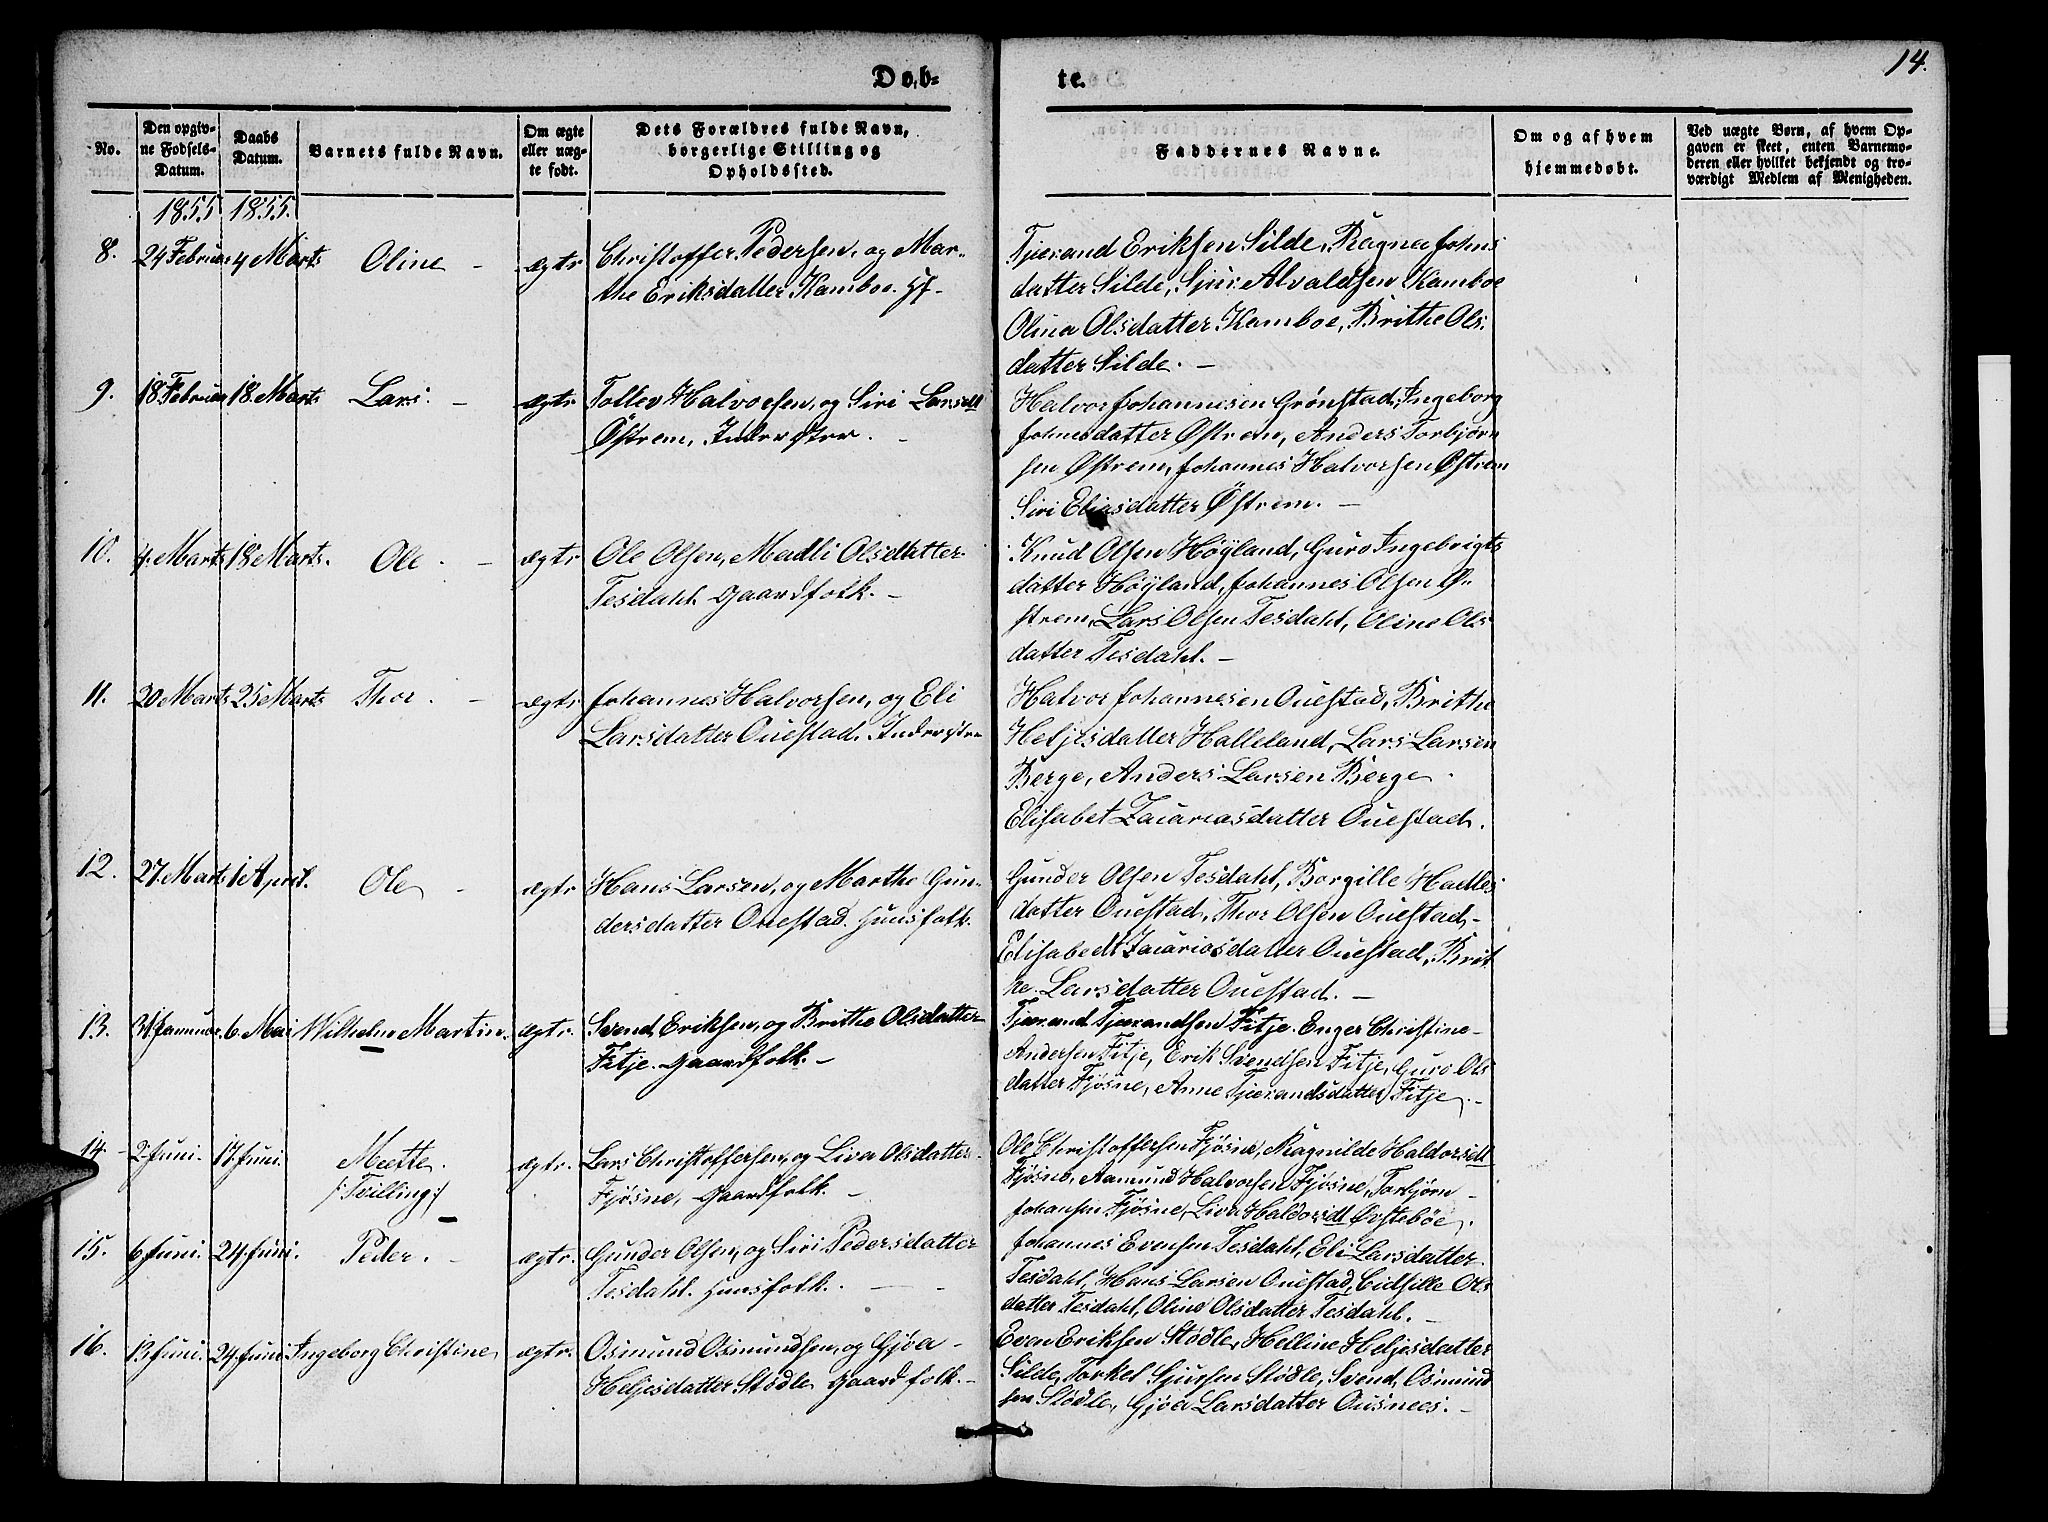 14.
Døb-
te.
No.
Den opgiv-
ne Fødsels-
Datum.
Daabs
Datum.
Barnets fulde Navn.
Om ægte
eller uæg-
te født.
Dets Forældres fulde Navn,
borgerlige Stilling og
Opholdssted.
Faddernes Navne.
Om og af hvem
hjemmedøbt.
Ved uægte Børn, af hvem Op-
gaven er skeet, enten Barnemo-
deren eller hvilket bekjendt og tro-
værdigt Medlem af Menigheden.
1855 1855.
8. 24 Februar 4 Marts Oline - ægte Christoffer Pedersen, og Mar-
the Eriksdatter Kamboe. Hf.
Tjerand Eriksen Silde, Ragna Johns
datter Silde, Sjur Alvaldsen Kamboe
Olina Olsdatter Kamboe, Brithe Ols
datter Silde. -
9. 18 Februar 18. Marts Lars. - ægte Tollev Halvorsen, og Siri Larsdtt
Østrem, Inderster. -
Halvor Johannesen Grønstad, Ingeborg
Johnesdatter Østrem, Anders Torbjørn
sen Østrem, Johannes Halvorsen Østrem
Siri Eliasdatter Østrem. -
10. 4. Marts 18 Marts. Ole. - ægte Ole Olsen, Madli Olsdatter
Tesdahl. Gaardfolk. -
Knud Olsen Høyland, Guro Ingebrigts
datter Høyland, Johannes Olsen Ø-
strem, Lars Olsen Tesdahl, Oline Ols
datter Tesdahl. -
11. 20 Marts 25 Marts Thor. - ægte Johannes Halvorsen, og Eli
Larsdatter Ouestad. Inderster
Halvor Johannesen Ouestad, Brithe
Heljesdatter Halleland, Lars Larsen
Berge, Anders Larsen Berge.
Elisabet Zacariasdatter Ouestad.
12. 27. Marts 1 April. Ole - ægte Hans Larsen, og Marthe Gun-
dersdatter Ouestad. Huusfolk.
Gunder Olsen Tesdahl, Borgille Hadles
datter Ouestad, Thor Olsen Ouestad-
Elisabedt Zacariasdatter Ouestad, Brit
he Larsdatter Ouestad. -
13. 31 Januar. 6. Mai Wilhelm Martin. ægte. Svend Eriksen, og Brithe Olsdatter
Fitje. Gaardfolk. -
Tjerand Tjerandsen Fitje. Enger Christine-
Andersen Fitje, Erik Svendsen Fitje, Guro Ols
datter Fjøsne, Anne Tjerandsdatter Fitje. -
14. 2 Juni. 17. Juni. Mette. ægte. Lars Christoffersen, og Liva Olsdatter
/: Tvilling :/ Fjøsne, Gaardfolk. -
Ole Christoffersen Fjøsne, Ragnilde Haldorsdtt
Fjøsne, Aamund Halvorsen Fjøsne, Torbjørn -
Johansen Fjøsne, Liva Haldorsdt Ørstebøe.
15. 6 Juni. 24. Juni. Peder. - ægte. Gunder Olsen, og Siri Pedersdatter
Tesdahl. Huusfolk. -
Johannes Evensen Tesdahl, Eli Larsdatter
Tesdahl, Hans Larsen Ouestad, Cidsille Ols
datter Tesdahl, Oline Olsdatter Tesdahl. -
16. 13 Juni. 24 Juni Ingeborg Christine ægte. Osmund Osmundsen, og Gjøa -
Heljesdatter Stødle Gaardfolk. -
Even Eriksen Stødle, Helline Heljesdatter
Silde, Torkel Sjursen Stødle, Svend Osmund
sen Stødle, Gjøa Larsdatter Ousnees. -